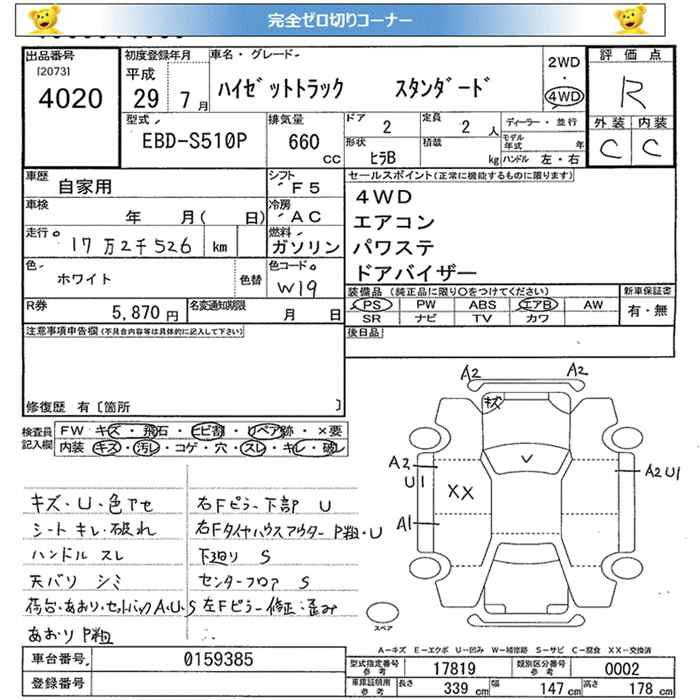 完全ゼロ切りコーナー
出品番号
[2073]
4020
初度登録年月
平成
29年 7月
車名・グレード
ハイゼットトラック スタンダード
2WD
・
4WD
評価点
R
外装 内装
C C
型式
EBD-S510P
排気量
660
CC
ドア
2
定員
2 人
ディーラー・並行
形状
ヒラB
積載
kg
モデル年式 年
ハンドル 左・右
車歴
自家用
シフト
F5
車検
年 月( 日)
冷房
AC
走行
17万2千526 km
燃料
ガソリン
色
ホワイト
色替
色コード
W19
R券
5,870 円
名変通知期限
月 日
セールスポイント(正常に機能するものに限ります)
4WD
エアコン
パワステ
ドアバイザー
装備品(純正品に限り○をつけてください)
PS PW ABS エアB AW
SR ナビ TV カワ
新車保証書
有・無
後日品
注意事項申告欄(不具合内容等は具体的に記入して下さい)
修復歴 有〔箇所 〕
検査員記入欄
FW キズ・飛石・ヒビ割・リペア跡・×要
内装 キズ・汚レ・コゲ・穴・スレ・キレ・破レ
キズ・U・色アセ
シート キレ・破れ
ハンドル スレ
天バリ シミ
荷台・あおり・セットバックA・U・S
あおり P粗
右Fピラー下部 U
右Fタイヤハウスアウター P粗・U
下廻り S
センターフロア S
左Fピラー修正・歪み
A2 A2
キズ
A2
U1
XX
A1
A2 U1
スペア
A-キズ E-エクボ U-凹み W-補修跡 S-サビ C-腐食 XX-交換済
車台番号 0159385
登録番号
型式指定番号 参考 17819
類別区分番号 参考 0002
車庫証明用 参考
長さ 339 cm 幅 147 cm 高さ 178 cm